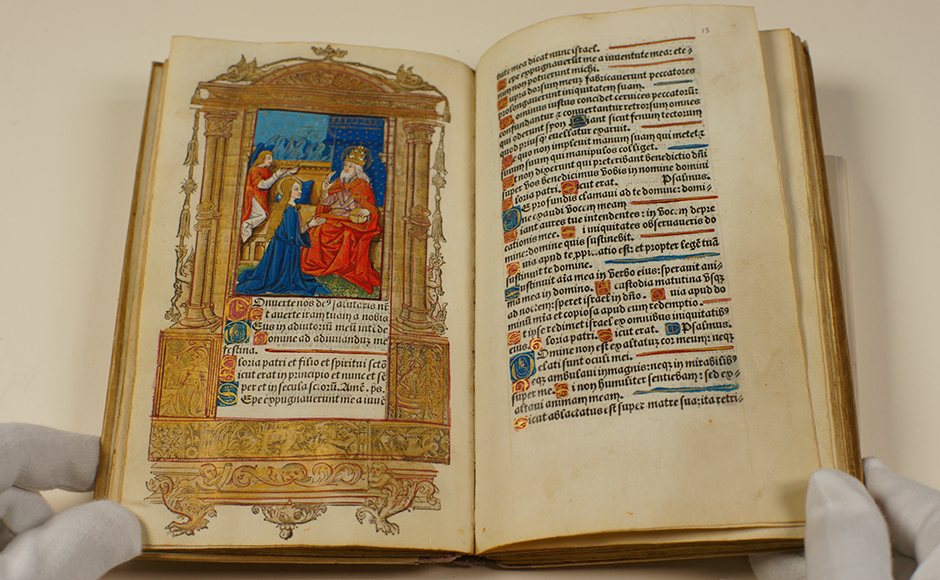 Onverte nos deꝰ salutaris nr̄
Et auerte iram tuam a nobis
Eus in adiutoriū meū intēde
Domine ad adiuuandū me
festina.
Gloria patri et filio et spiritui sctō
Sicut erat in principio et nunc et sē
per et in secula sclorū. Amē. ps.
Sepe expugnauerunt me a iuuē
15
tute mea dicat nunc israel.
Sepe expugnauerūt me a iuuentute mea: ete-
nim non potuerunt michi.
Supra dorsum meum fabricauerunt peccatores
prolongauerunt iniquitatem suam.
Dominus iustus concidet ceruices peccatorū:
confundantur & conuertantur retrorsum omnes
qui oderunt syon Fiant sicut fenum tectorum
quod priusqꝫ euellatur exaruit.
De quo non impleuit manum suam qui metet &
sinum suum qui manipulos colliget.
Et non dixerunt qui preteribant benedictio dn̄i
super vos benediximus vobis in nomine domini
Gloria patri. Sicut erat. Psalmus.
De profundis clamaui ad te domine: domi-
ne exaudi vocem meam
Fiant aures tue intendentes: in vocē depre
cationis mee. Si iniquitates obseruaueris do
mine: domine quis sustinebit.
Quia apud te ppi..atio est: et propter legē tuā
sustinuit te domine.
Sustinuit aīa mea in verbo eius: sperauit ani-
ma mea in domino. A custodia matutina vsqꝫ
ad noctem: speret israel in dn̄o. Quia apud do
minū mīa et copiosa apud eum redemptio.
Et ipse redimet israel ex omnibus iniquitatibꝰ
eius. Gloria patri. Sicut erat. Psalmus.
Domine non est exaltatū cor meum: neqꝫ
elati sunt oculi mei.
Neqꝫ ambulaui in magnis: neqꝫ in mirabilibꝰ
super me. Si non humiliter sentiebam: sed ex-
altaui animam meam.
Sicut ablactatus est super matre sua: ita retri-